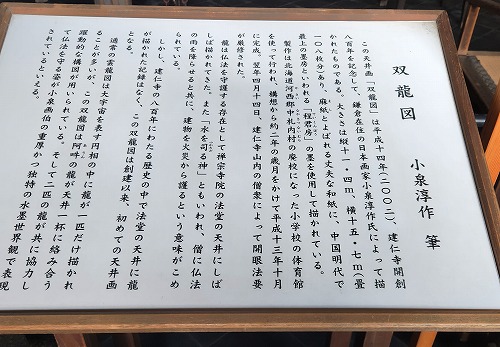 双龍図　小泉淳作 筆
この天井画「双龍図」は平成十四年(二〇〇二)、建仁寺開創
八百年を記念して、鎌倉在住の日本画家小泉淳作氏によって描
かれたものである。大きさは縦十一・四m、横十五・七m(畳
一〇八枚分)あり、麻紙とよばれる丈夫な和紙に、中国明代で
最上の墨房といわれる「程君房」の墨を使用して描かれている。
製作は北海道河西郡中札内村の廃校になった小学校の体育館
を使って行われ、構想から約二年の歳月をかけて平成十三年十月
に完成。翌年四月十四日、建仁寺山内の僧衆によって開眼法要
が厳修された。
龍は仏法を守護する存在として禅宗寺院の法堂の天井にしば
しば描かれてきた。また「水を司る神」ともいわれ、僧に仏法
の雨を降らせると共に、建物を火災から護るという意味がこめ
られている。
しかし、建仁寺の八百年にわたる歴史の中で法堂の天井に龍
が描かれた記録はなく、この双龍図は創建以来、初めての天井画
となる。
通常の雲龍図は大宇宙を表す円相の中に龍が一匹だけ描かれ
ることが多いが、この双龍図は阿吽の龍が天井一杯に絡み合う
躍動的な構図が用いられている。そして二匹の龍が共に協力し
て仏法を守る姿が小泉画伯の重厚かつ独特の水墨世界観で表現
されているといえる。